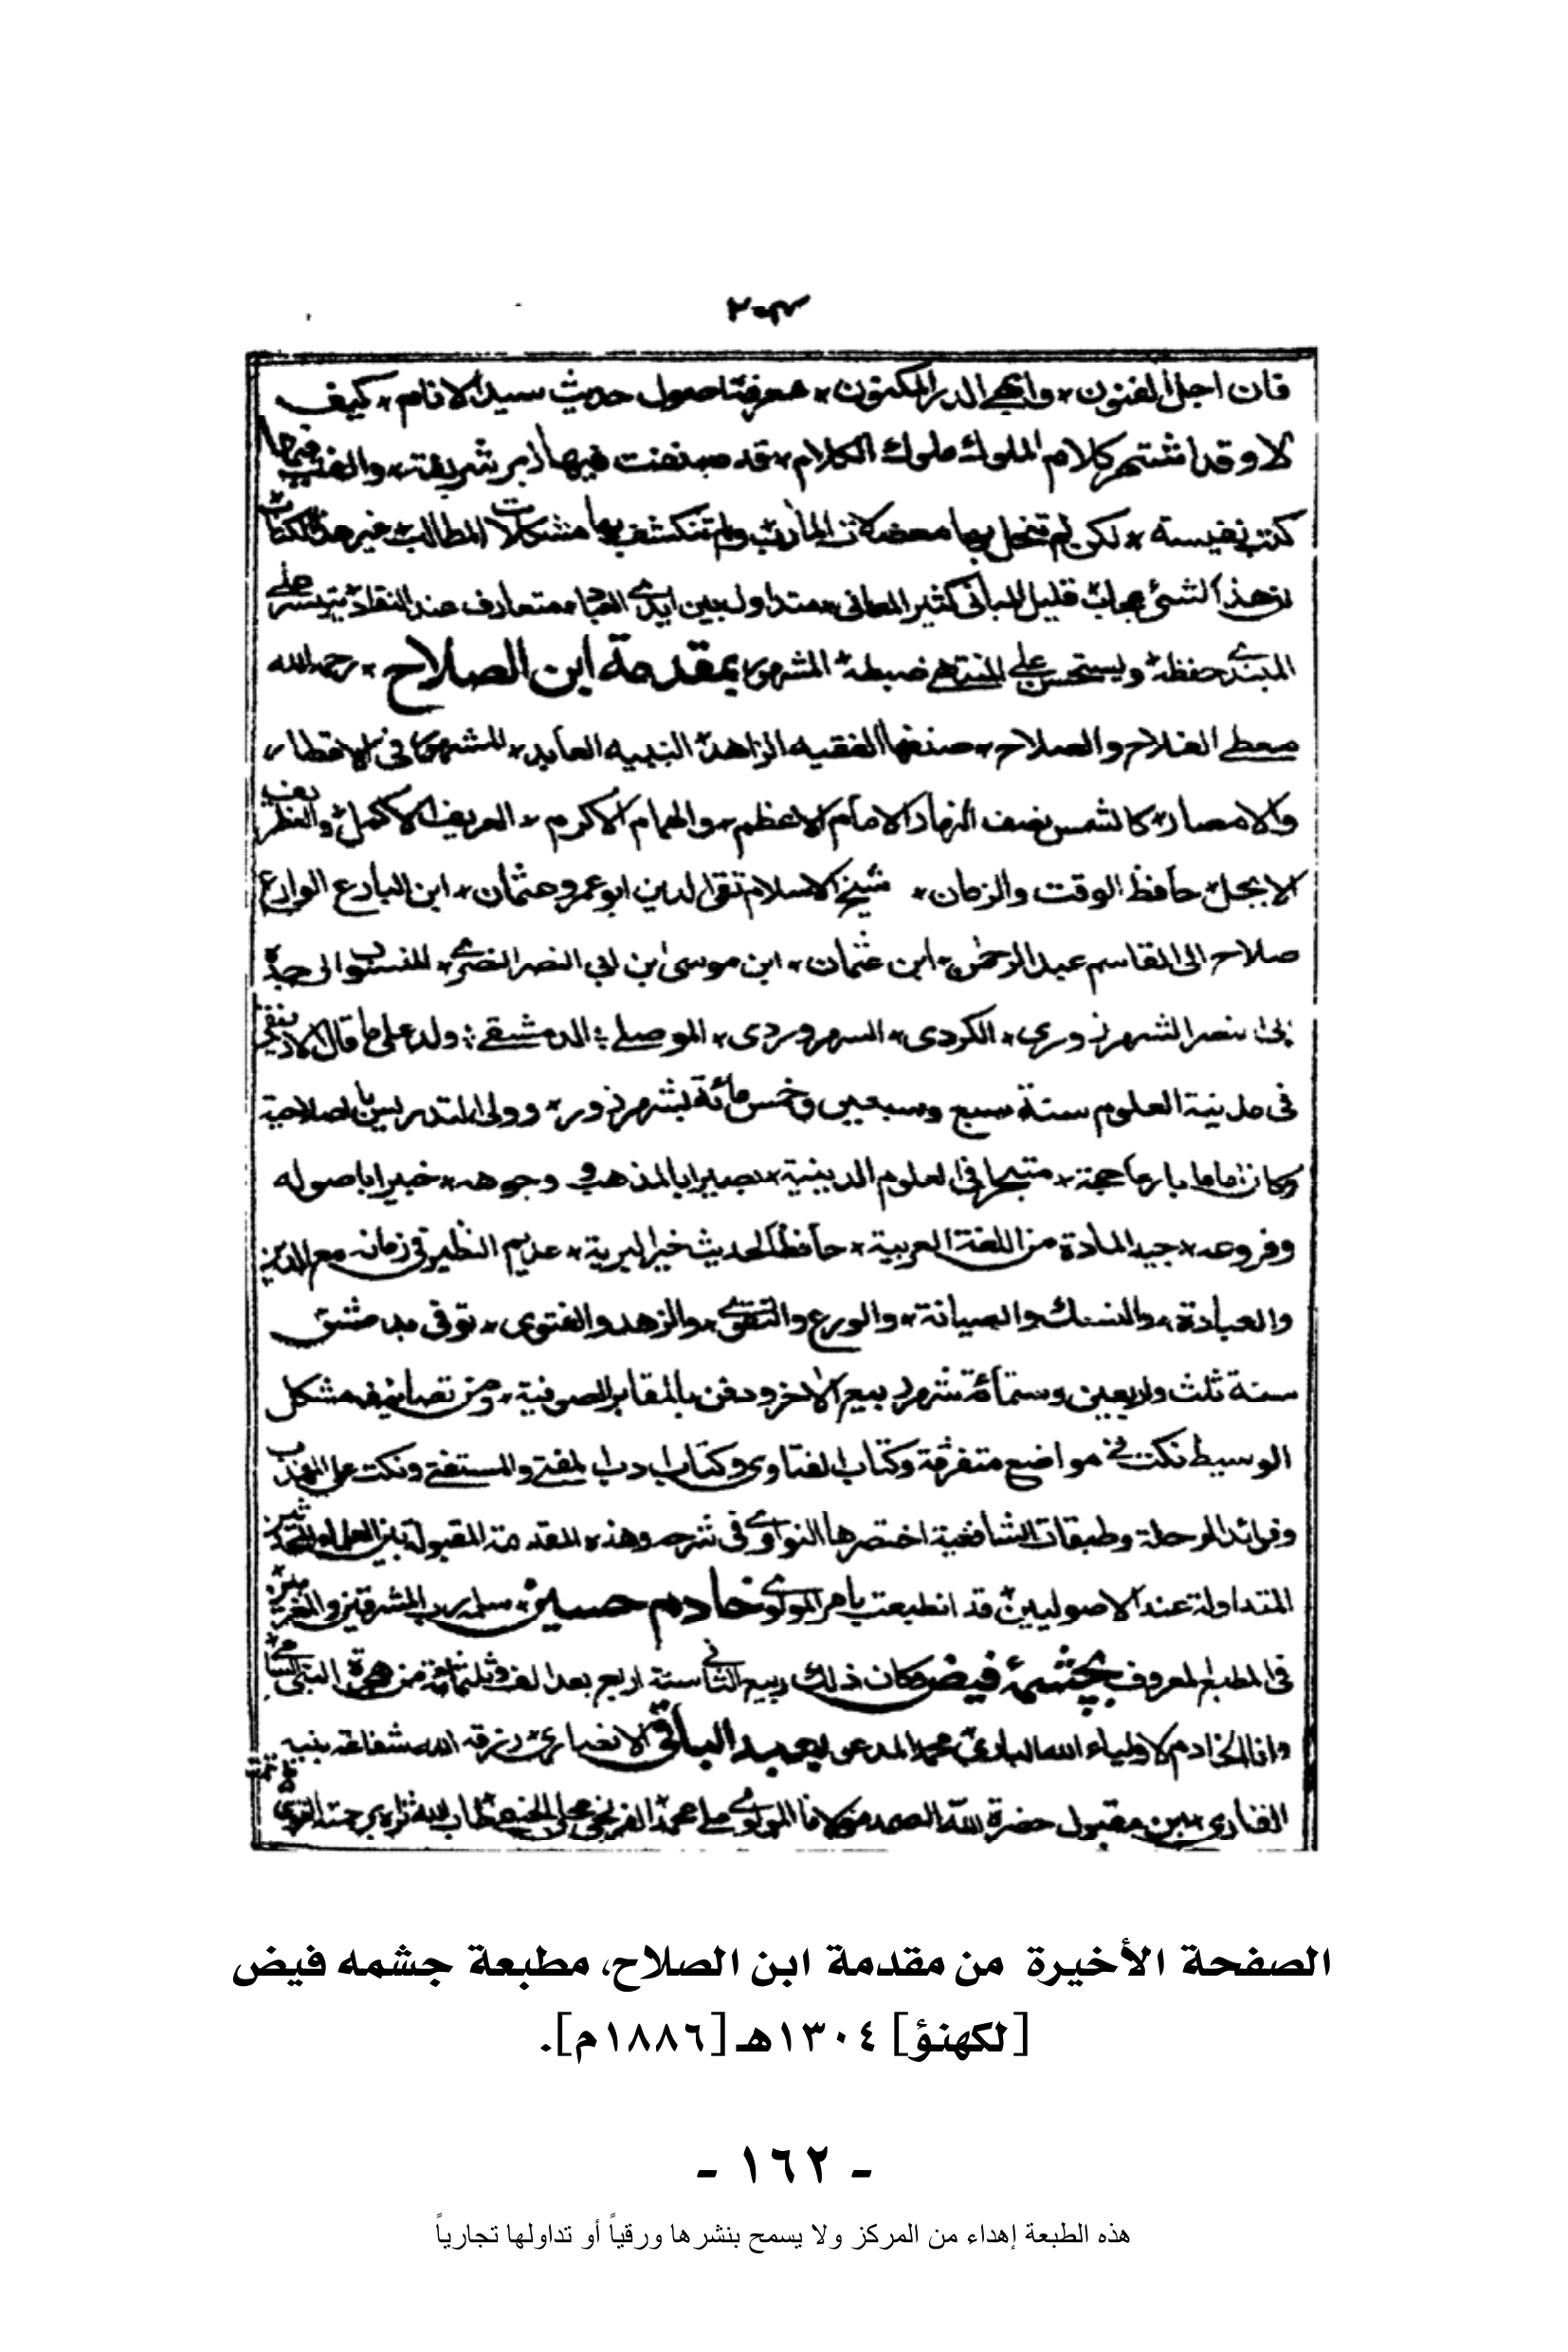 ٢٠٣
فان اجل الفنون * وابهى الدر المكنون * معرفة اصول حديث سيد الانام * كيف
لا وقد اشتهر كلام الملوك ملوك الكلام * قد صنفت فيها زبر شريفة * والفت فيها
كتب نفيسة * لكن لم تنحل بها معضلات المآرب ولم تنكشف بها مشكلات المطالب * غير هذا الكتاب
قليل المبانى كثير المعانى * متداول بين ايدى متعارف عند النقاد * يتيسر على
المبتدى حفظه * ويستحسن على المنتهى ضبطه * المشهور بمقدمة ابن الصلاح * رحمه الله
معطى الفلاح والصلاح * صنفها الفقيه الزاهد * النبيه العابد * المشهور فى الاقطار
والامصار * كالشمس نصف النهار الامام الاعظم * والهمام الاكرم * العريف الاكمل * والغطريف
الابجل * حافظ الوقت والزمان * شيخ الاسلام تقى الدين ابو عمرو عثمان * ابن البارع الوارع
صلاح ابى القاسم عبد الرحمن * ابن عثمان * ابن موسى ابن ابى النصر النصرى * المنسوب الى جده
ابى نصر الشهرزورى * الكردى * السهروردى * الموصلى * الدمشقى * ولد على ما قال الازنيقى
فى مدينة العلوم سنة سبع وسبعين وخمس مائة بشهرزور * وولى التدريس بالصلاحية
وكان اماما بارعا حجة * متبحرا فى العلوم الدينية * بصيرا بالمذهب و وجوهه * خبيرا باصوله
وفروعه * جيد المادة من اللغة العربية * حافظا لحديث خير البرية * عديم النظير فى زمانه مع الدين
والعبادة * والنسك والصيانة * والورع والتقوى * والزهد والفتوى * توفى بدمشق
سنة ثلث واربعين وستمأة شهر ربيع الاخر ودفن بالمقابر الصوفية * ومن تصانيفه مشكل
الوسيط نكت فى مواضع متفرقة وكتاب الفتاوى وكتاب ادب المفتى والمستفتى ونكت على المهذب
وفوائد الرحلة وطبقات الشافعية اختصرها النواوى فى شرحه وهذه المقدمة المقبولة بين العلماء
المتداولة عند الاصوليين * قد انطبعت بامر المولوى خادم حسين * سلمه رب المشرقين والمغربين *
فى المطبع المعروف بچشمۀ فيض وكان ذلك ربيع الثانى سنة اربع بعد الف وثلثمائة من هجرة النبى
وانا الخادم لاولياء الله البارى * محمد المدعو بعبد الباقى الانصارى * رزقه الله شفاعة نبيه
ابن مقبول حضرة الله الصمد مولانا المولوى على محمد الفرنجى محلى الحنفى * طاب الله ثراه
تمت
الصفحة الأخيرة من مقدمة ابن الصلاح، مطبعة جشمه فيض
[لكهنؤ] ١٣٠٤هـ [١٨٨٦م].
- ١٦٢ -
هذه الطبعة إهداء من المركز ولا يسمح بنشرها ورقياً أو تداولها تجارياً